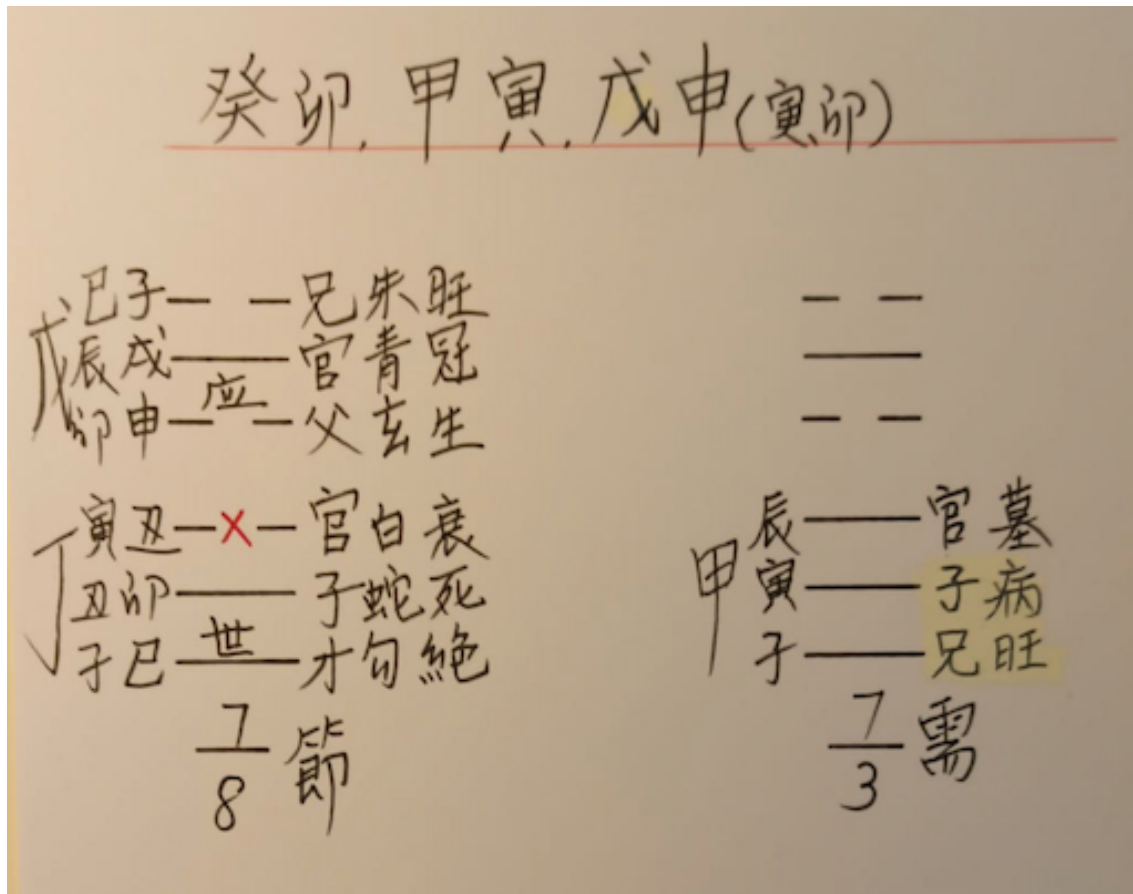 癸卯.甲寅.戊申(寅卯)
戊
巳子 兄朱旺
辰戌 官青冠
应
卯申 父玄生
丁
寅丑 × 官白衰
丑卯 子蛇死
世
子巳 才勾絶
7
8 節
甲
辰 官墓
寅 子病
子 兄旺
7
3 需